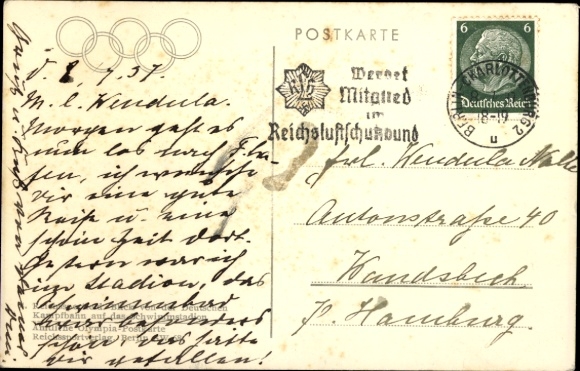 POSTKARTE
6 6
Deutsches Reich
BERLIN-CHARLOTTENBURG 2
18-19
u
Werdet
Mitglied
im
Reichsluftschutzbund
d. 2.7.37.
M. l. Wendula.
Morgen geht es
nun los nach
ich wünsche
dir eine gute
Reise u. eine
schöne Zeit dort.
Gestern war ich
im Stadion, das
Schwimmbad
besonders
schön, das hätte
dir gefallen!
Frl. Wendula
Antonstraße 40
Wandsbeck
b. Hamburg.
Kampfbahn auf das Schwimmstadion
Amtliche Olympia-Postkarte
Reichssportverlag Berlin